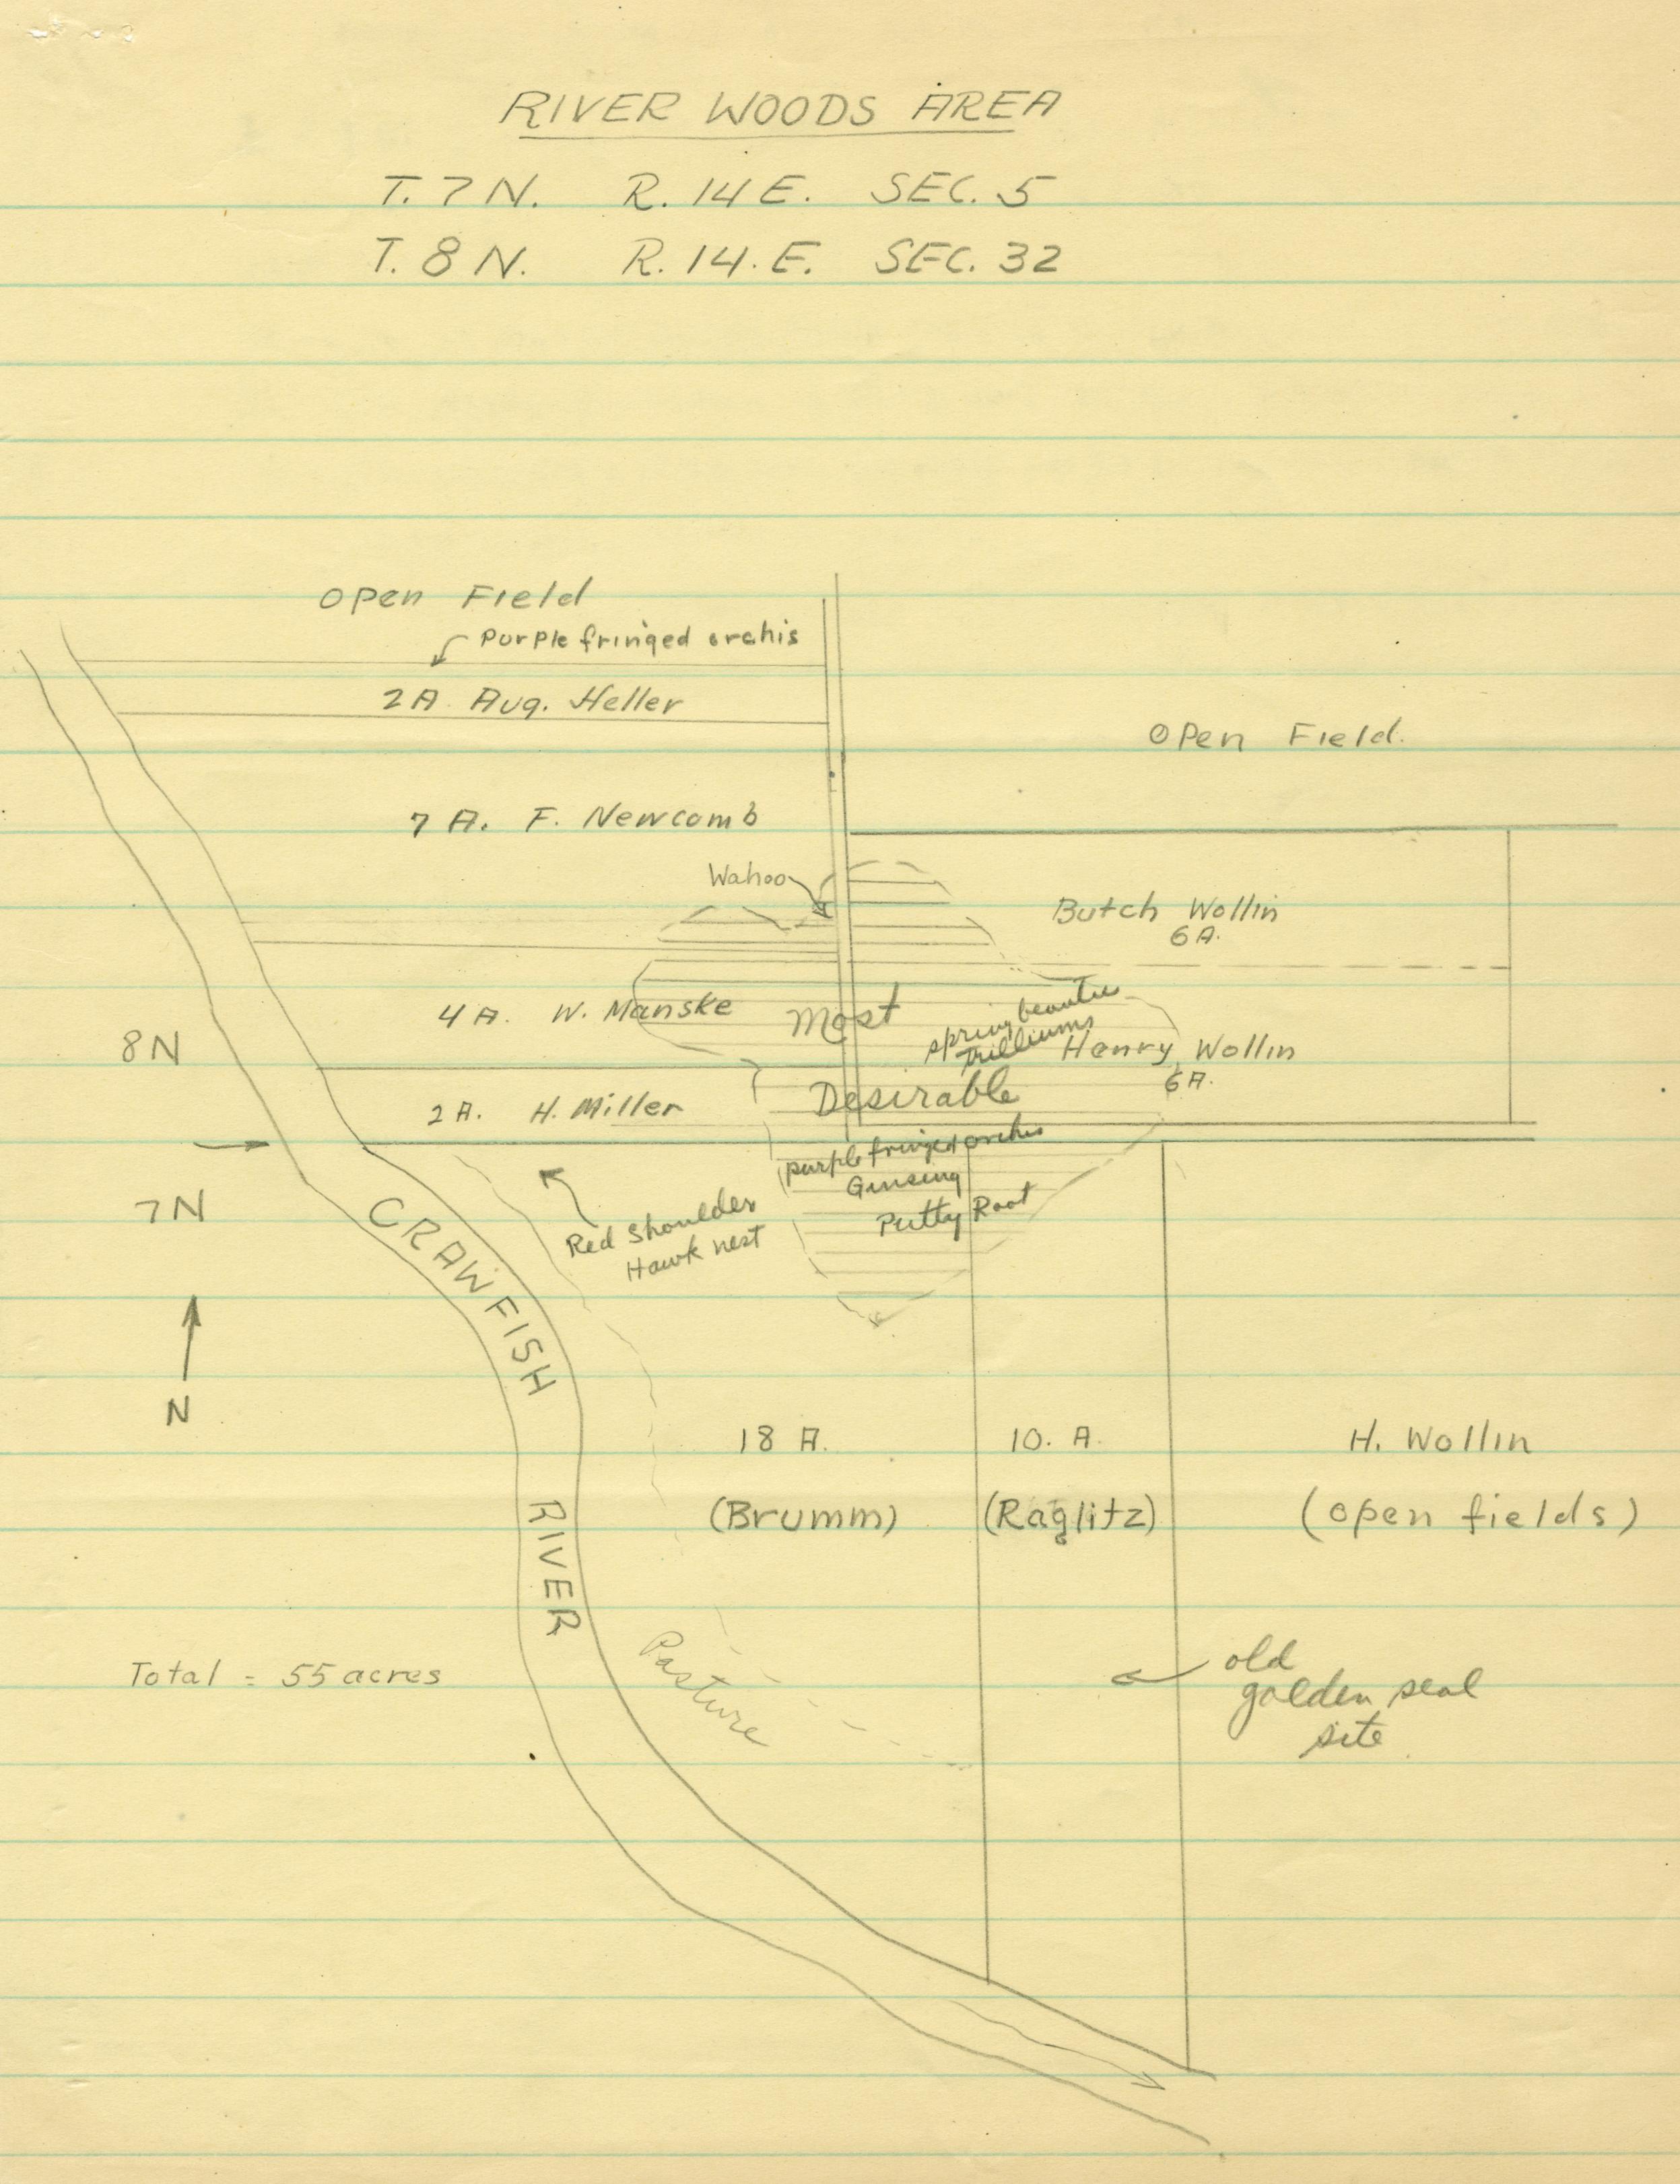 RIVER WOODS AREA
T. 7 N. R. 14 E. SEC. 5
T. 8 N. R. 14. E. SEC. 32
Open Field
Purple fringed orchis
2 A Aug. Heller
Open Field.
7 A. F. Newcomb
Wahoo
Butch Wollin
6 A.
4 A. W. Manske
Most
spring beauties
trilliums
Henry Wollin
6 A.
8 N
Desirable
2 A. H. Miller
purple fringed orchis
Ginseng
Putty Root
7 N
Red Shoulder
Hawk nest
CRAWFISH
RIVER
N
18 A.
(Brumm)
10. A.
(Raglitz)
H. Wollin
(open fields)
Total = 55 acres
Pasture
old
golden seal
site